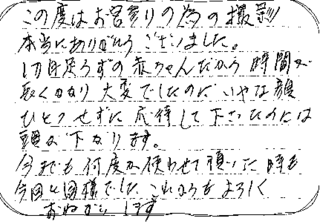 この度はお宮参りの為の撮影
本当にありがとうございました。
1カ月たらずの赤ちゃんだから時間が
長くかかり大変でしたのに いやな顔
ひとつせずに 応待して下さったのには
頭が下がります。
今までも何度か使わせて頂いた時も
今回と同様でした これからもよろしく
おねがいします